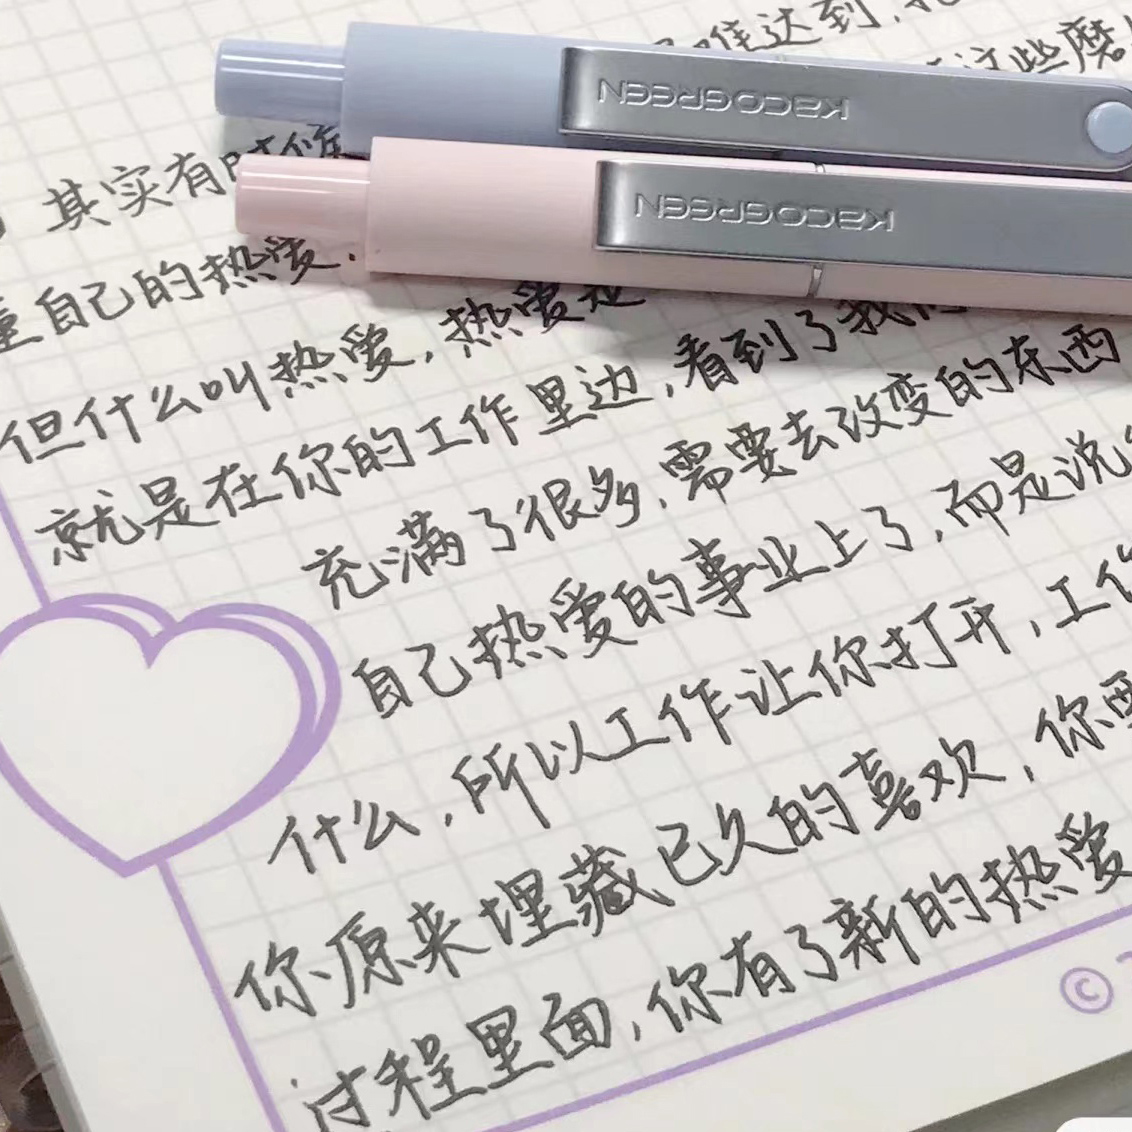 达到,
这些磨
其实有时候
KACOGREEN
KACOGREEN
自己的热爱.
但什么叫热爱,热爱是
就是在你的工作里边,看到了我
充满了很多,需要去改变的东西
自己热爱的事业上了,而是说
什么,所以工作让你打开,工作
你原来埋藏已久的喜欢,你要
过程里面,你有了新的热爱
©